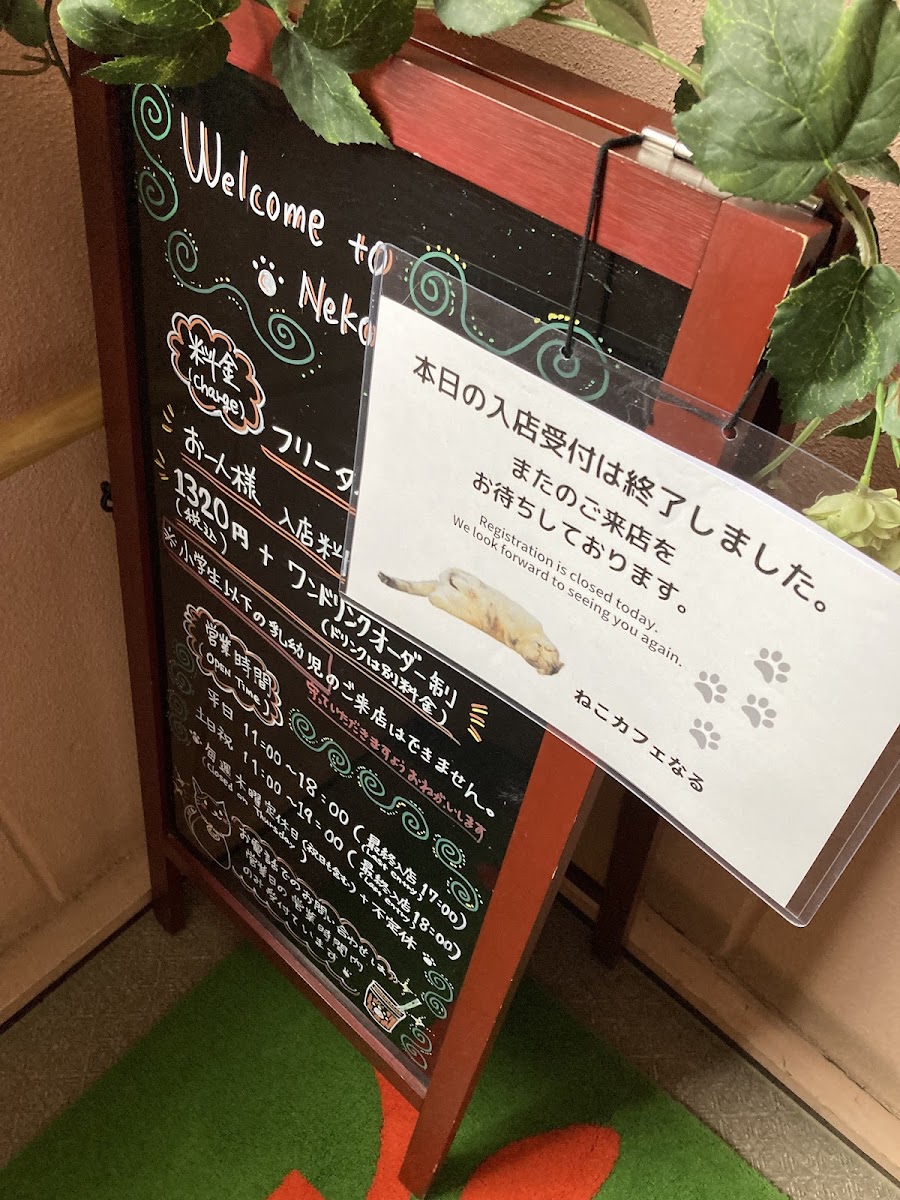 Welcome to
Neko
料金
(Charge)
フリータ
お一人様 入店料
1320円 + ワンドリンクオーダー制
(税込)
(ドリンクは別料金)
※小学生以下の乳幼児のご来店はできません。
守っていただきますようおねがいします
営業時間
(Open Time)
平日 11:00~18:00 (最終入店 17:00)
(Last entry)
土日祝 11:00~19:00 (最終入店 18:00)
(Last entry)
毎週木曜定休日(祝日も含む)+不定休
(Closed on Thursday)
お電話でのお問い合わせは
営業日の営業時間内
のみ受けています
本日の入店受付は終了しました。
またのご来店を
お待ちしております。
Registration is closed today.
We look forward to seeing you again.
ねこカフェなる